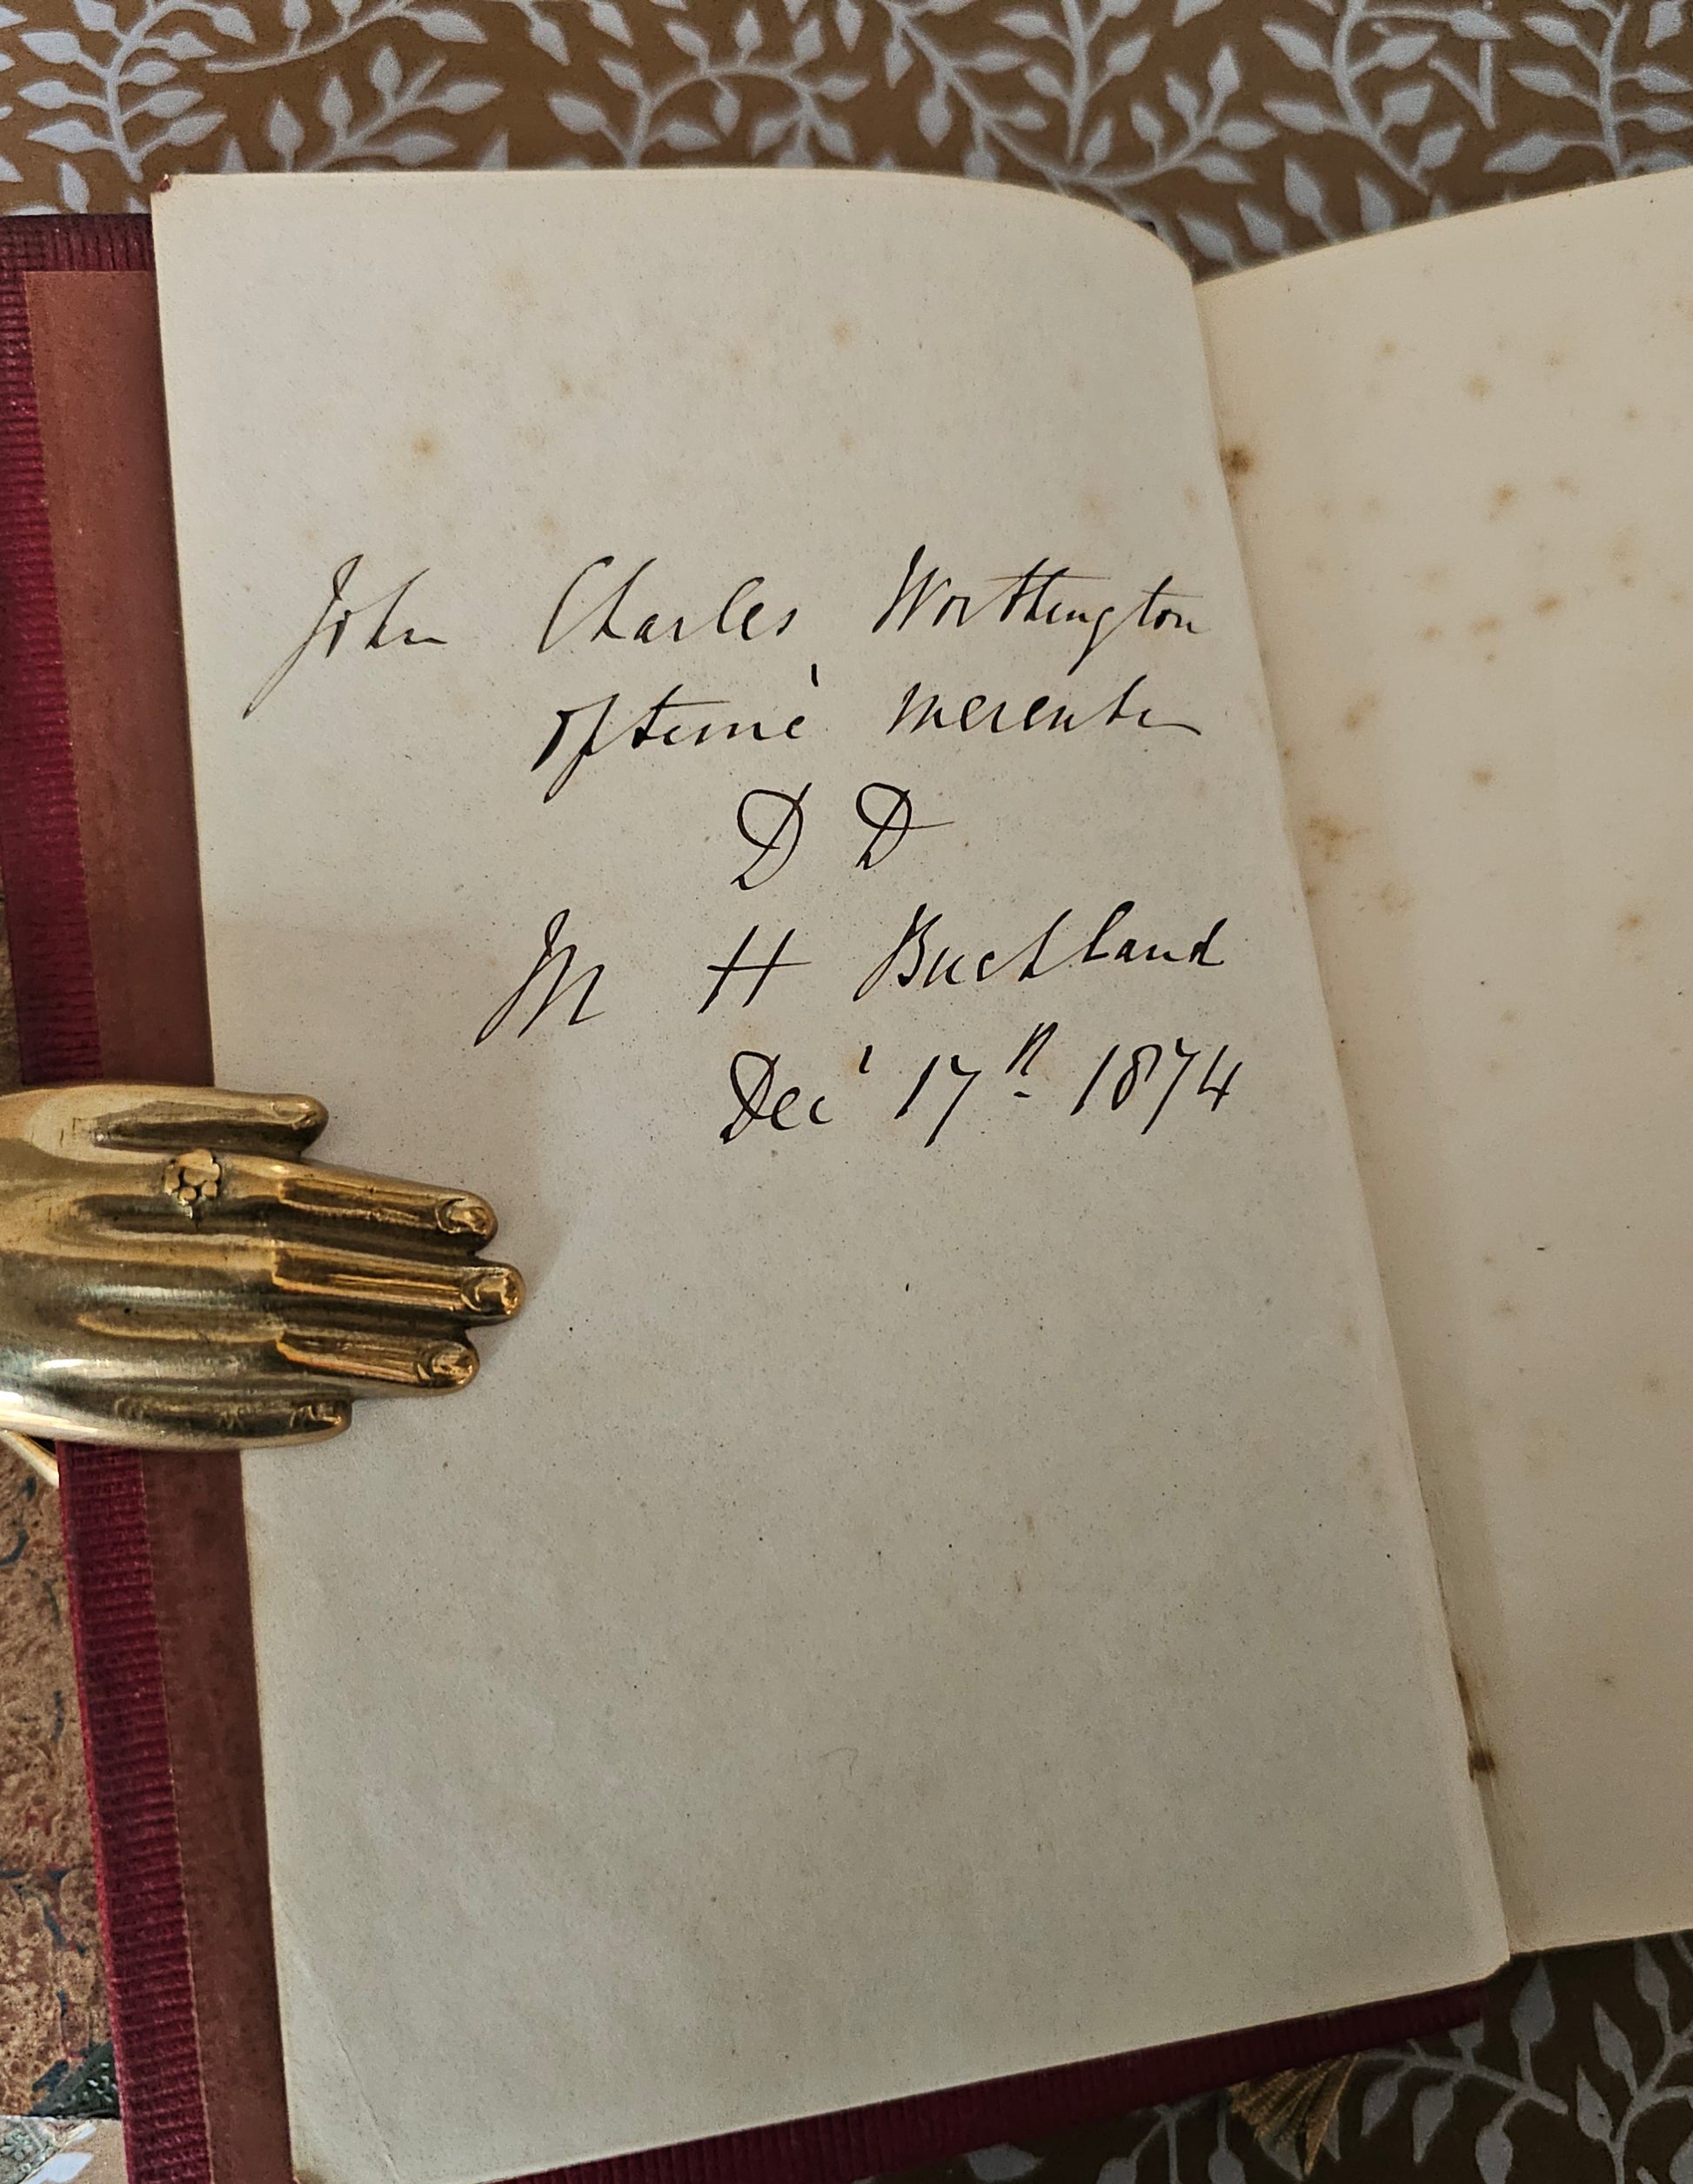 John Charles Worthington
optimè merenti
D D
M H Buckland
Decr 17th 1874